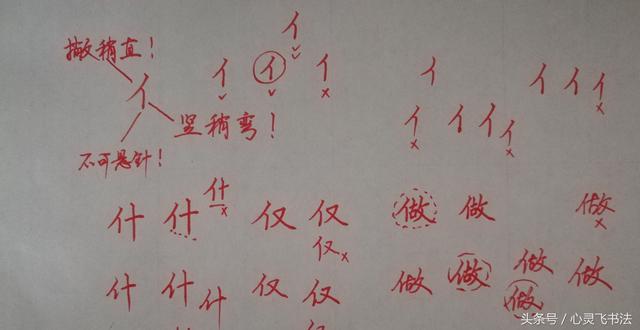 亻
撇稍直！
亻 亻 亻 亻 亻 亻 亻
亻
竖稍弯！
亻 亻 亻 亻 亻
不可悬针！
什 什 什 仅 仅 做 做 做
仅
什 什 什 仅 仅 做 做 做 做
做
头条号／心灵飞书法